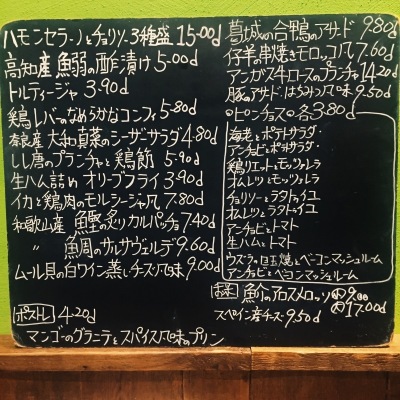 ハモンセラーノとチョリソー3種盛 15.00d
高知産 魚弱の酢漬け 5.00d
トルティージャ 3.90d
鶏レバーのなめらかなコンフィ 5.80d
奈良産 大和真菜のシーザーサラダ 4.80d
しし唐のプランチャと鶏節 5.90d
生ハム詰めオリーブフライ 3.90d
イカと鶏肉のモルシージャ風 7.80d
和歌山産 鰹の炙りカルパッチョ 7.40d
〃 鯛のサルサヴェルデ 9.60d
ムール貝の白ワイン蒸しチーズ風味 9.00d
ポストレ 4.20d
マンゴーのグラニテとスパイス風味のプリン
葛城の合鴨のアサード 9.80d
仔羊の串焼きモロッコ風 7.60d
アンガス牛ロースのプランチャ 14.20d
豚のアサード はちみつ風味 9.50d
ピンチョス 各3.80d
海老とポテトサラダ・
アンチョビとポテトサラダ・
鶏リエットとモッツァレラ
オムレツとモッツァレラ
チョリソーとラタトゥイユ
オムレツとラタトゥイユ
アンチョビとトマト
生ハムとトマト
ウズラの目玉焼とベーコンマッシュルーム
アンチョビとベーコンマッシュルーム
お米 魚介のアロスメロッソ 小9.00
大17.00d
スペイン産チーズ 9.50d